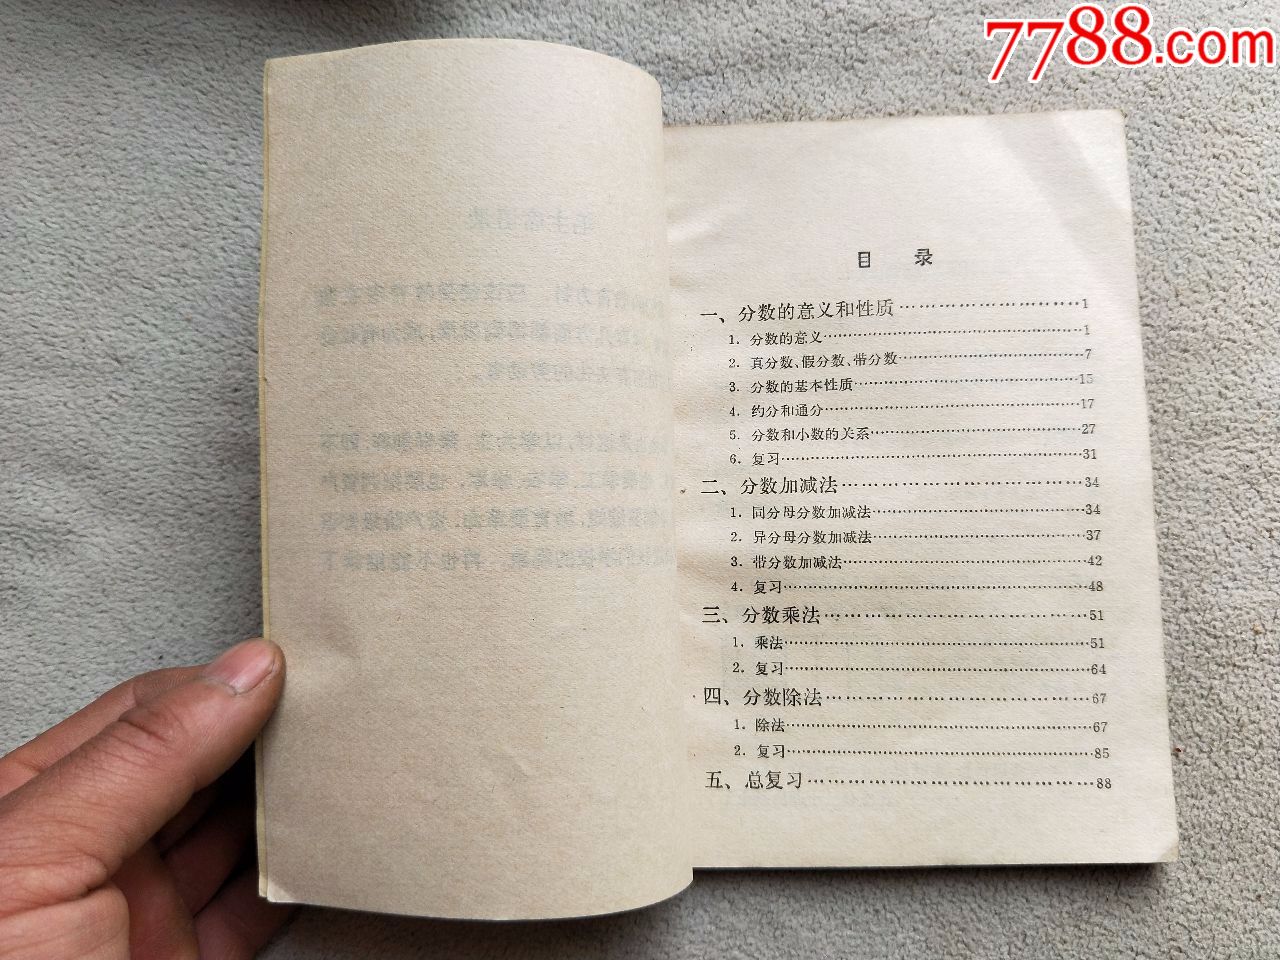 7788.com
目 录
一、分数的意义和性质……………………1
1. 分数的意义……………………1
2. 真分数、假分数、带分数……………………7
3. 分数的基本性质……………………15
4. 约分和通分……………………17
5. 分数和小数的关系……………………27
6. 复习……………………31
二、分数加减法……………………34
1. 同分母分数加减法……………………34
2. 异分母分数加减法……………………37
3. 带分数加减法……………………42
4. 复习……………………48
三、分数乘法……………………51
1. 乘法……………………51
2. 复习……………………64
四、分数除法……………………67
1. 除法……………………67
2. 复习……………………85
五、总复习……………………88